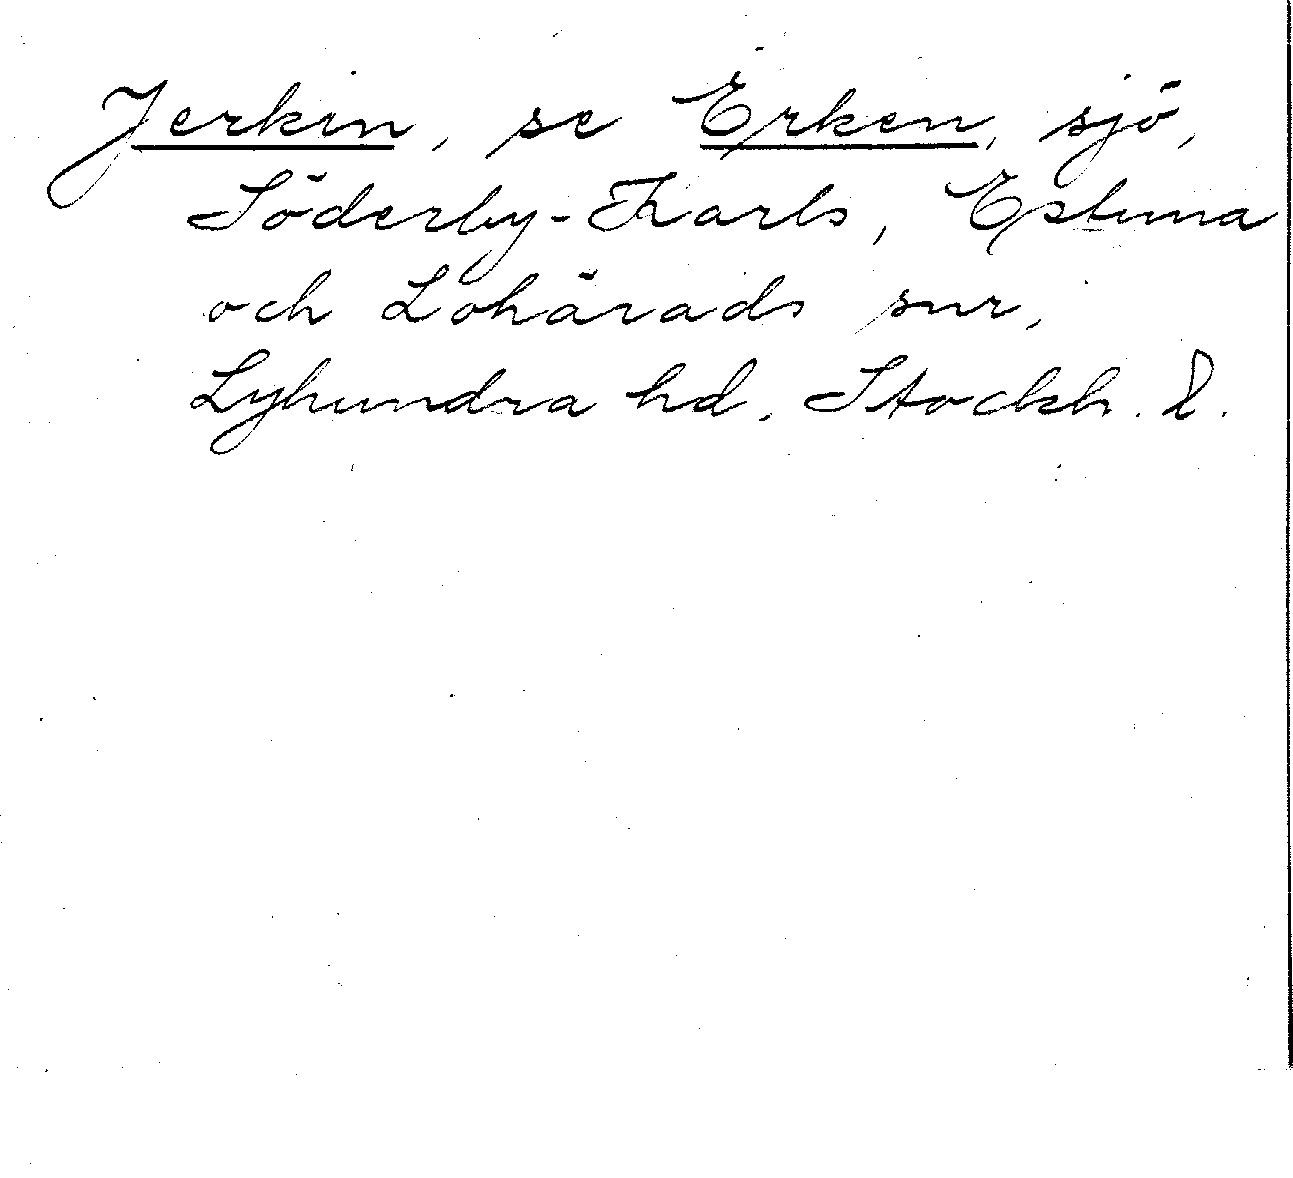 Jerkin, se Erken, sjö,
Söderby-Karls, Estuna
och Lohärads snr,
Lyhundra hd, Stockh. l.